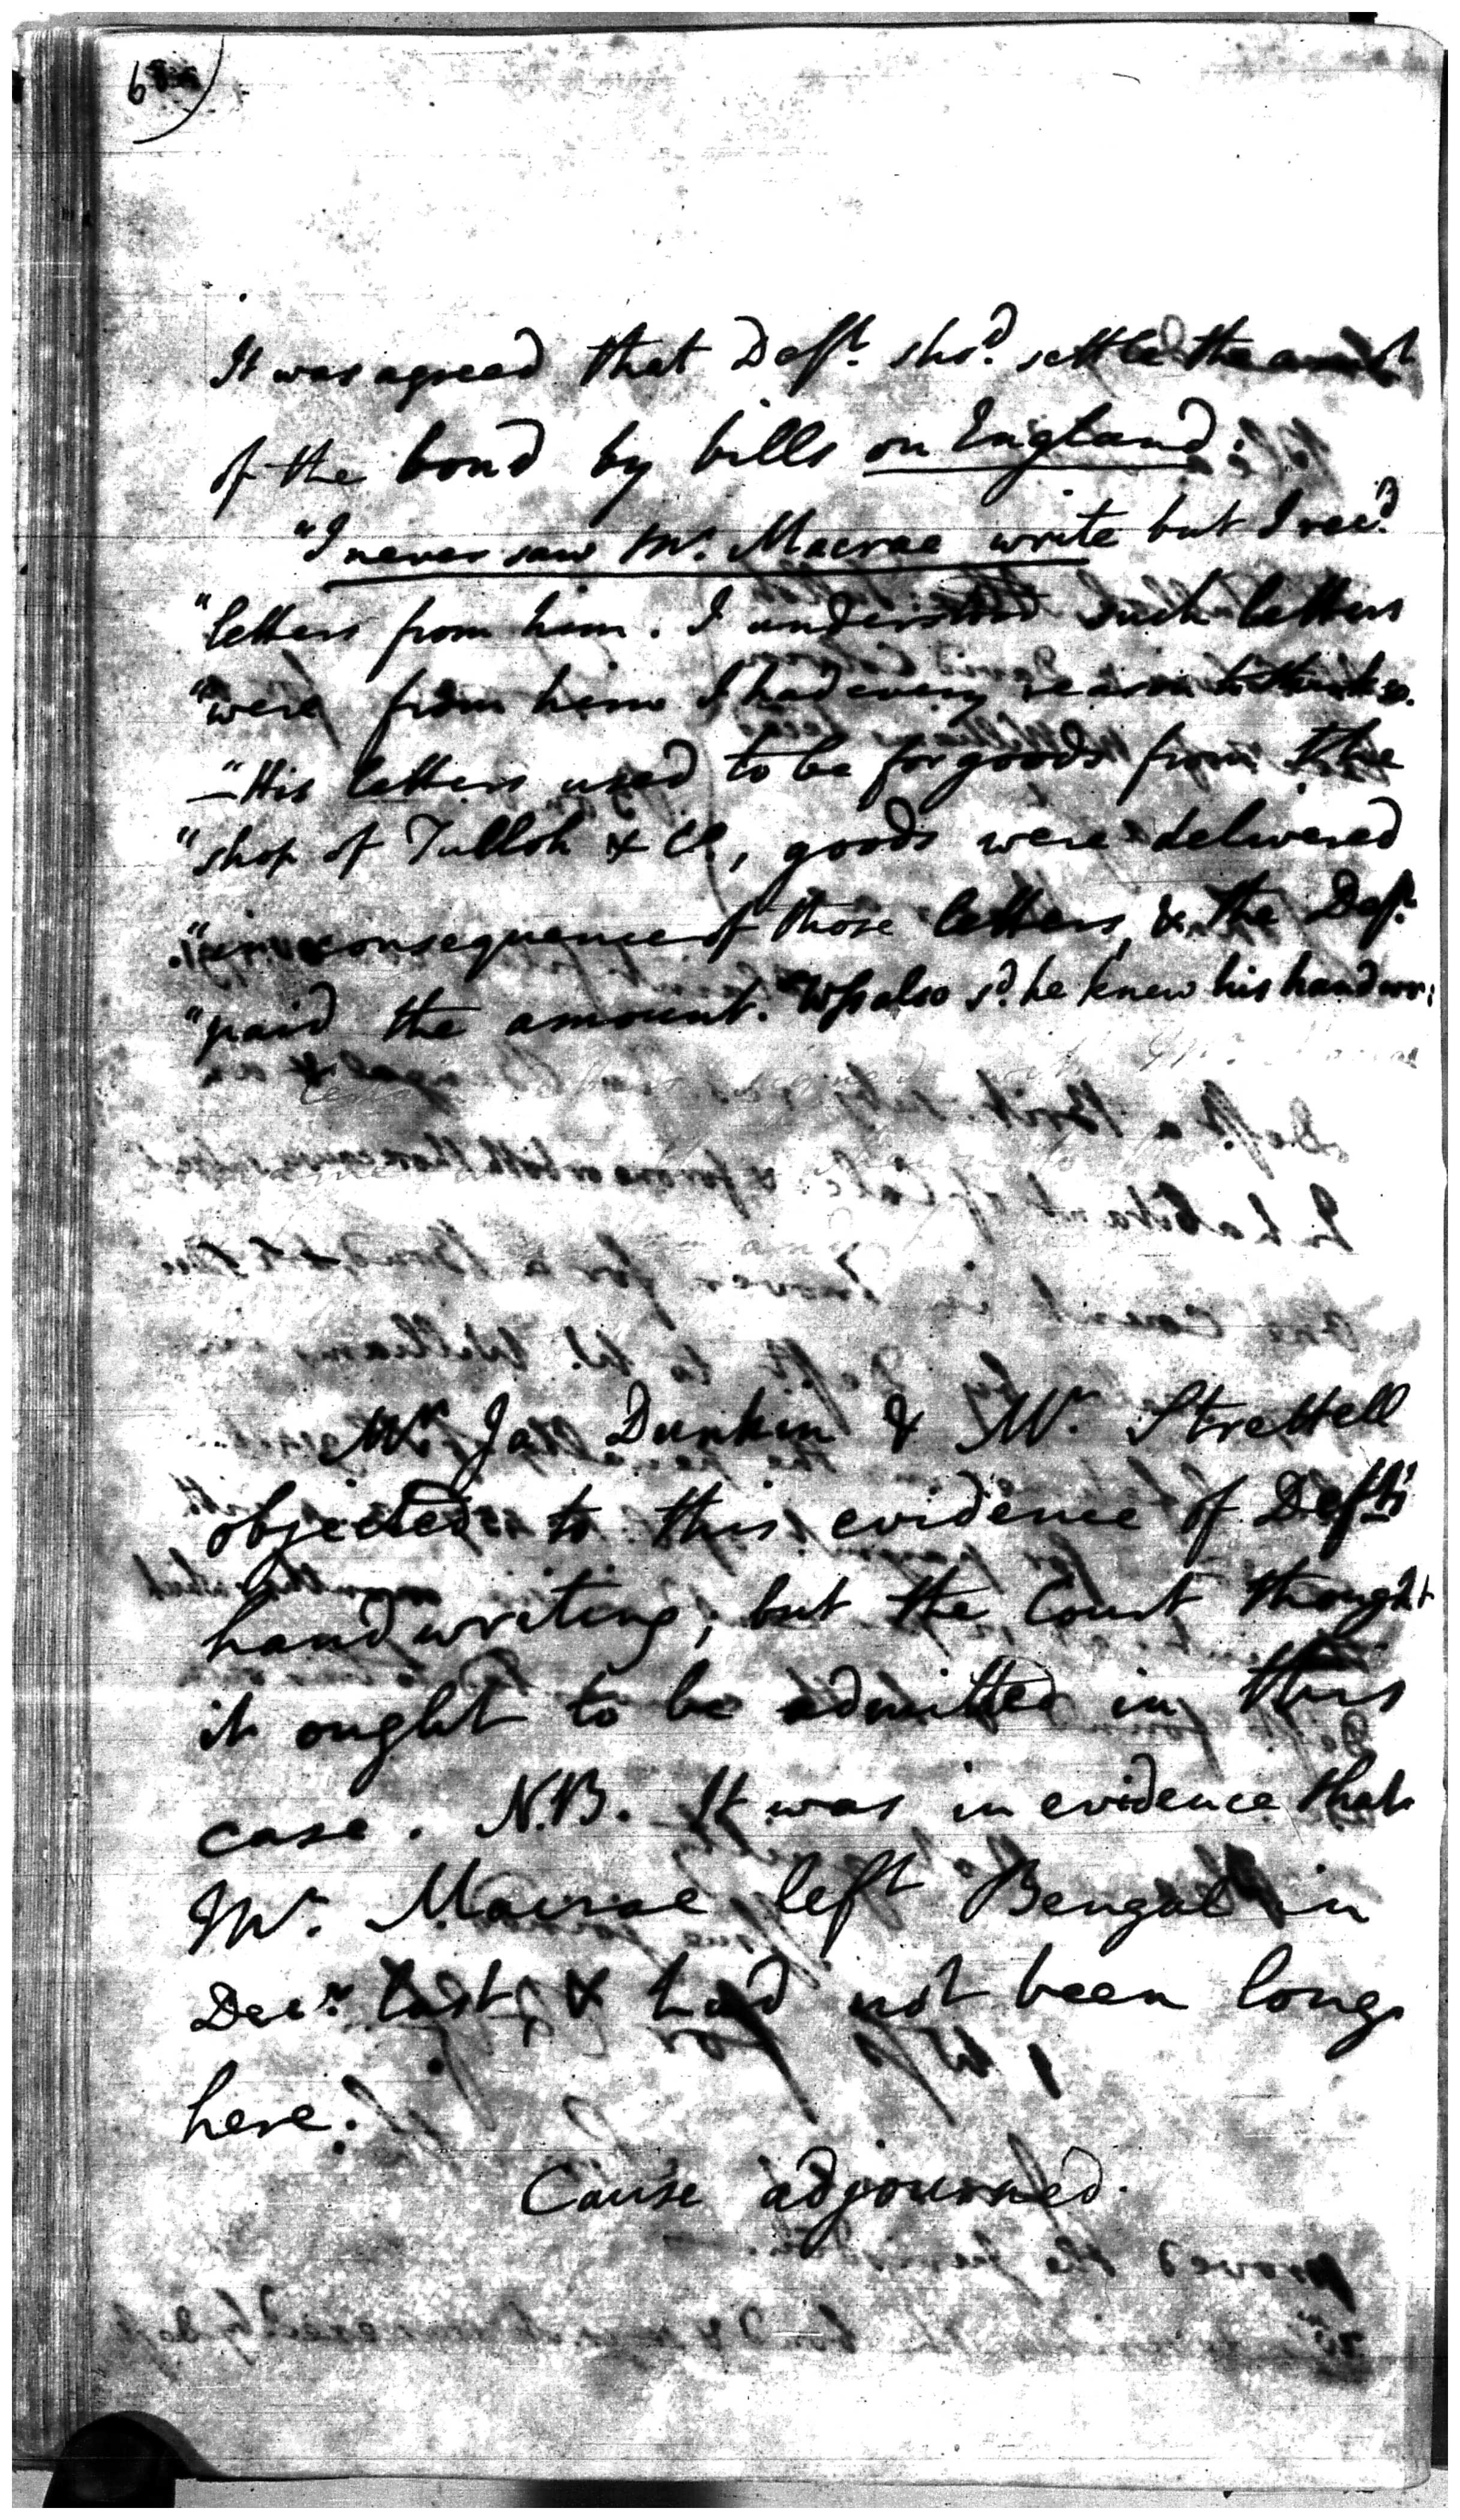 6
It was agreed that Deft. shod. settle the amot
of the bond by bills on England.
"I never saw Mr. Macrae write but I recd.
"letters from him. I understood such letters
"were from him I had every reason to think so.
"— His letters used to be for goods from the
"shop of Tulloh & Co., goods were delivered
"in consequence of those letters, & the Deft.
"paid the amount. Wss also sd. he knew his handwr:
Mr. Jas. Dunkin & Mr. Strettell
objected to this evidence of Defts'
handwriting, but the Court thought
it ought to be admitted in this
case. N.B. It was in evidence that
Mr. Macrae left Bengal in
Decr. last & had not been long
here.
Cause adjourned.